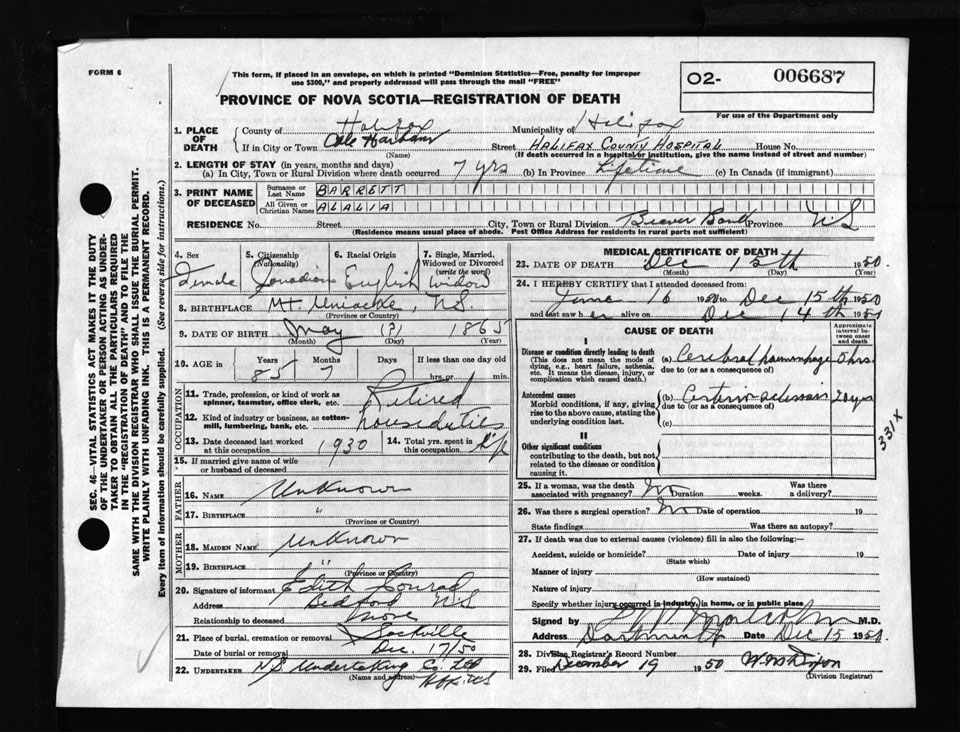 FORM 6
This form, if placed in an envelope, on which is printed "Dominion Statistics—Free, penalty for improper
use $300," and properly addressed will pass through the mail "FREE"
PROVINCE OF NOVA SCOTIA—REGISTRATION OF DEATH
O2- 006687
For use of the Department only
SEC. 46—VITAL STATISTICS ACT MAKES IT THE DUTY
OF THE UNDERTAKER OR PERSON ACTING AS UNDER-
TAKER TO OBTAIN ALL THE PARTICULARS REQUIRED
IN THE "REGISTRATION OF DEATH" AND TO FILE THE
SAME WITH THE DIVISION REGISTRAR WHO SHALL ISSUE THE BURIAL PERMIT.
WRITE PLAINLY WITH UNFADING INK. THIS IS A PERMANENT RECORD.
Every item of information should be carefully supplied. (See reverse side for instructions.)
1. PLACE OF DEATH County of Halifax Municipality of Halifax
If in City or Town Cole Harbour (Name) Street HALIFAX COUNTY HOSPITAL House No.
(If death occurred in a hospital or institution, give the name instead of street and number)
2. LENGTH OF STAY (in years, months and days)
(a) In City, Town or Rural Division where death occurred 7 yrs (b) In Province Lifetime (c) In Canada (if immigrant)
3. PRINT NAME OF DECEASED Surname or Last Name BARRETT
All Given or Christian Names ALALIA
RESIDENCE No. Street City, Town or Rural Division Beaver Bank Province N.S
(Residence means usual place of abode. Post Office Address for residents in rural parts not sufficient)
4. Sex 5. Citizenship (Nationality) 6. Racial Origin 7. Single, Married, Widowed or Divorced (write the word)
Female Canadian English Widow
8. BIRTHPLACE Mt. Uniacke, N.S
(Province or Country)
9. DATE OF BIRTH May (?) 1865
(Month) (Day) (Year)
10. AGE IN Years 85 Months 7 Days If less than one day old hrs. or min.
OCCUPATION
11. Trade, profession, or kind of work as spinner, teamster, office clerk, etc. Retired
12. Kind of industry or business, as cotton-mill, lumbering, bank, etc. housduties
13. Date deceased last worked at this occupation 1930 14. Total yrs. spent in
15. If married give name of wife or husband of deceased
FATHER
16. NAME Unknown
17. BIRTHPLACE "
(Province or Country)
MOTHER
18. MAIDEN NAME Unknown
19. BIRTHPLACE "
(Province or Country)
20. Signature of informant Edith Conrad
Address Bedford N.S
Relationship to deceased
21. Place of burial, cremation or removal Sackville
Date of burial or removal Dec. 17/50
22. UNDERTAKER N.S Undertaking Co. Ltd
(Name and address)
MEDICAL CERTIFICATE OF DEATH
23. DATE OF DEATH Dec 15th 1950
(Month) (Day) (Year)
24. I HEREBY CERTIFY that I attended deceased from:
June 16 to Dec 15th 1950
and last saw h er alive on Dec 14th 1950
CAUSE OF DEATH
Approximate interval between onset and death
I
Disease or condition directly leading to death (a) Cerebral haemorrhage 5 hrs.
(This does not mean the mode of dying, e.g., heart failure, asthenia, etc. It means the disease, injury, or complication which caused death.)
due to (or as a consequence of)
Antecedent causes (b) 20 yrs
Morbid conditions, if any, giving rise to the above cause, stating the underlying condition last.
due to (or as a consequence of)
(c)
II
Other significant conditions
contributing to the death, but not related to the disease or condition causing it.
331X
25. If a woman, was the death associated with pregnancy? No Duration weeks. Was there a delivery?
26. Was there a surgical operation? No Date of operation 19
State findings Was there an autopsy?
27. If death was due to external causes (violence) fill in also the following:—
Accident, suicide or homicide? Date of injury 19
(State which)
Manner of injury
(How sustained)
Nature of injury
Specify whether injury occurred in industry, in home, or in public place
Signed by M.D.
Address Dartmouth Date Dec 15 1950
28. Division Registrar's Record Number
29. Filed December 19 1950
(Division Registrar)